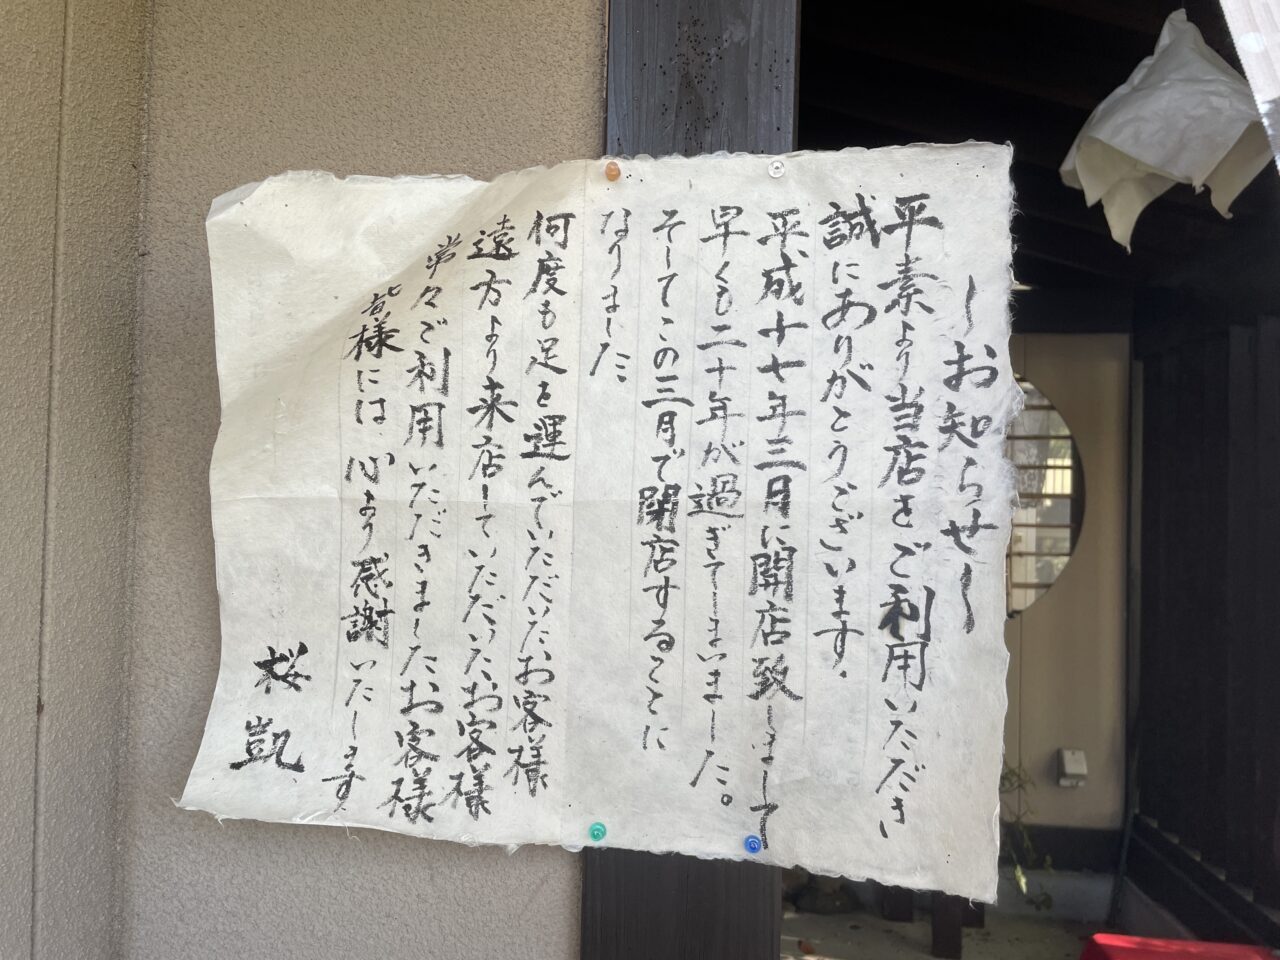 〜お知らせ〜
平素より当店をご利用いただき
誠にありがとうございます.
平成十七年三月に開店致しまして
早くも二十年が過ぎてしまいました。
そしてこの三月で閉店することに
なりました
何度も足を運んでいただいたお客様
遠方より来店していただいたお客様
常々ご利用いただきましたお客様
皆様には、心より感謝いたします.
桜凱